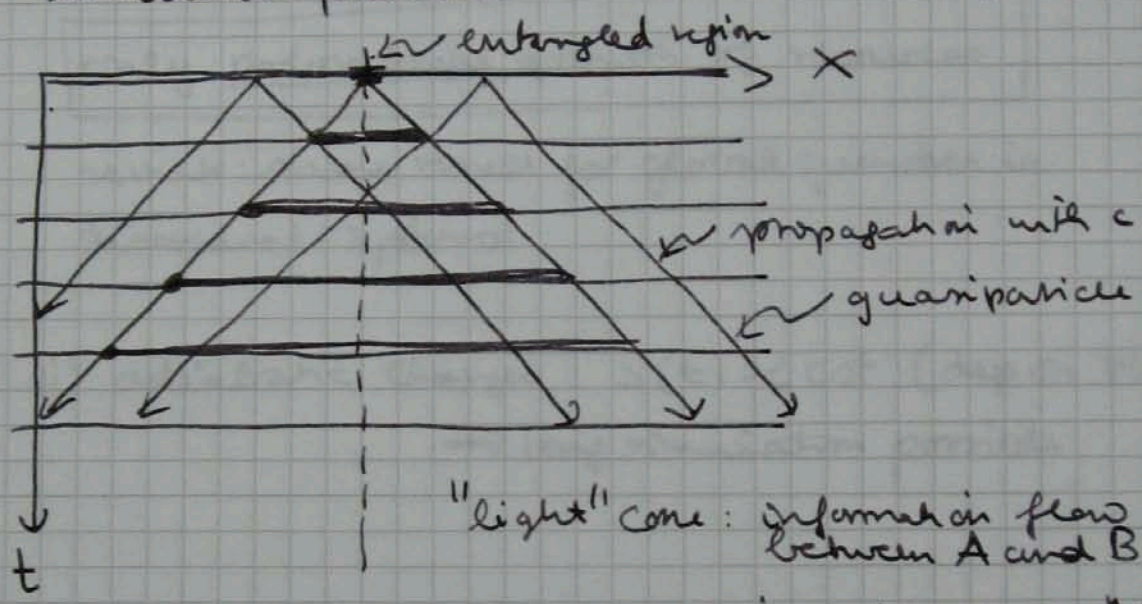 entangled region
X
propagation with c
quasiparticle
"light" cone: information flow
between A and B
t